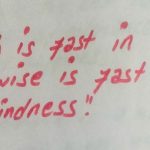 is fast in
wise is fast
indness."